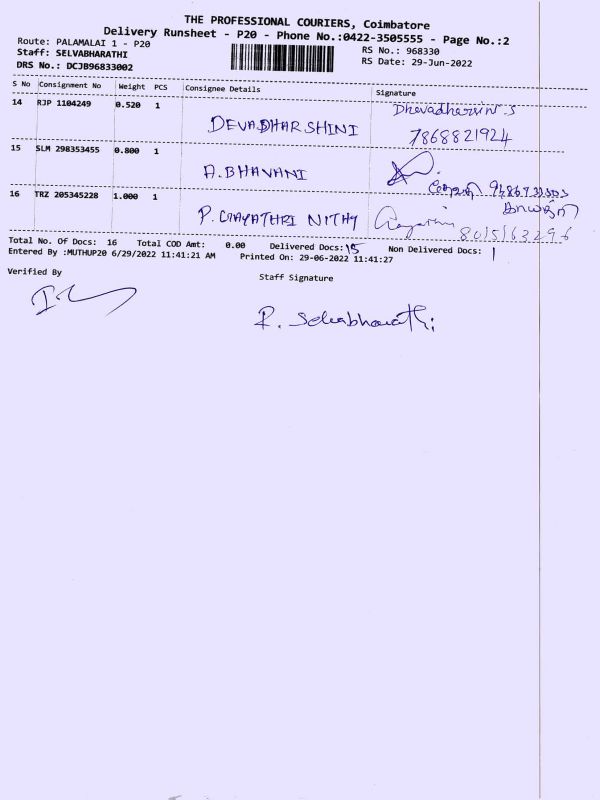 THE PROFESSIONAL COURIERS, Coimbatore
Delivery Runsheet - P20 - Phone No.:0422-3505555 - Page No.:2
Route: PALAMALAI 1 - P20
RS No.: 968330
Staff: SELVABHARATHI
RS Date: 29-Jun-2022
DRS No.: DCJB96833002
S No Consignment No Weight PCS Consignee Details Signature
14 RJP 1104249 0.520 1 DEVADHARSHINI
7868821924
15 SLM 298353455 0.800 1 A.BHAVANI
16 TRZ 205345228 1.000 1 P. GAYATHRI NITHY Gayathri
8015163296
Total No. Of Docs: 16 Total COD Amt: 0.00 Delivered Docs: 15 Non Delivered Docs: 1
Entered By :MUTHUP20 6/29/2022 11:41:21 AM Printed On: 29-06-2022 11:41:27
Verified By
Staff Signature
R. Selvabharathi